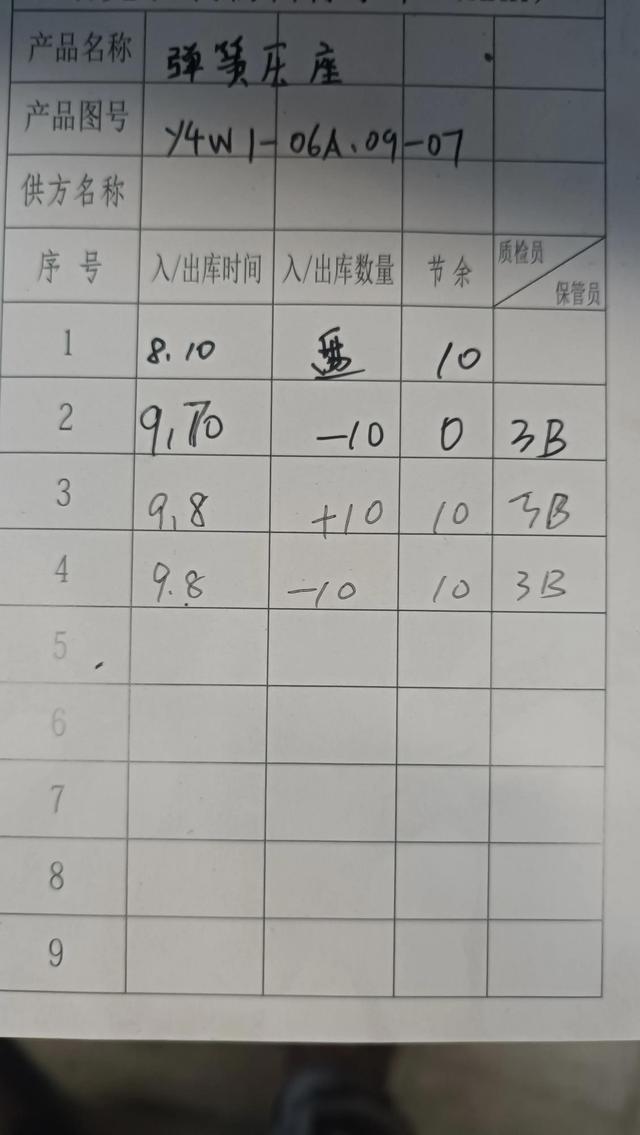 产品名称 弹簧压座
产品图号 Y4W1-06A.09-07
供方名称
序号 入/出库时间 入/出库数量 节余 质检员 保管员
1 8.10 10
2 9,10 -10 0 3B
3 9,8 +10 10 3B
4 9.8 -10 10 3B
5
6
7
8
9